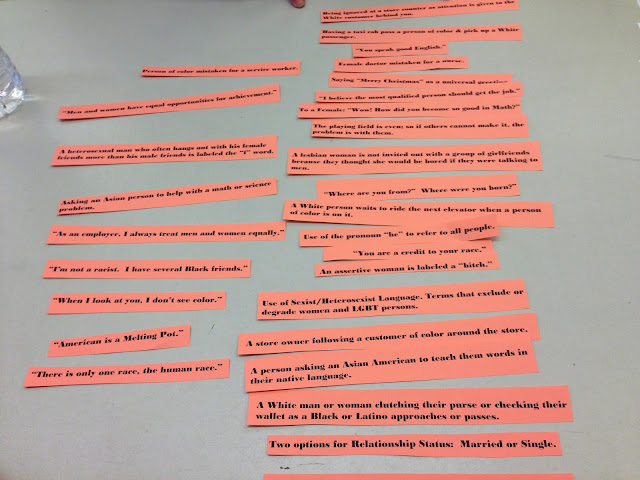 Person of color mistaken for a service worker.
"Men and women have equal opportunities for achievement."
A heterosexual man who often hangs out with his female
friends more than his male friends is labeled the "f" word.
Asking an Asian person to help with a math or science
problem.
"As an employer, I always treat men and women equally."
"I'm not a racist. I have several Black friends."
"When I look at you, I don't see color."
"American is a Melting Pot."
"There is only one race, the human race."
Being ignored at a store counter as attention is given to the
White customer behind you.
Having a taxi cab pass a person of color & pick up a White
passenger.
"You speak good English."
Female doctor mistaken for a nurse.
Saying "Merry Christmas" as a universal
"I believe the most qualified person should get the job."
To a Female: "Wow! How did you become so good in Math?"
The playing field is even; so if others cannot make it, the
problem is with them.
A lesbian woman is not invited out with a group of girlfriends
because they thought she would be bored if they were talking to
men.
"Where are you from?" Where were you born?"
A White person waits to ride the next elevator when a person
of color is on it.
Use of the pronoun "he" to refer to all people.
"You are a credit to your race."
An assertive woman is labeled a "bitch."
Use of Sexist/Heterosexist Language. Terms that exclude or
degrade women and LGBT persons.
A store owner following a customer of color around the store.
A person asking an Asian American to teach them words in
their native language.
A White man or woman clutching their purse or checking their
wallet as a Black or Latino approaches or passes.
Two options for Relationship Status: Married or Single.